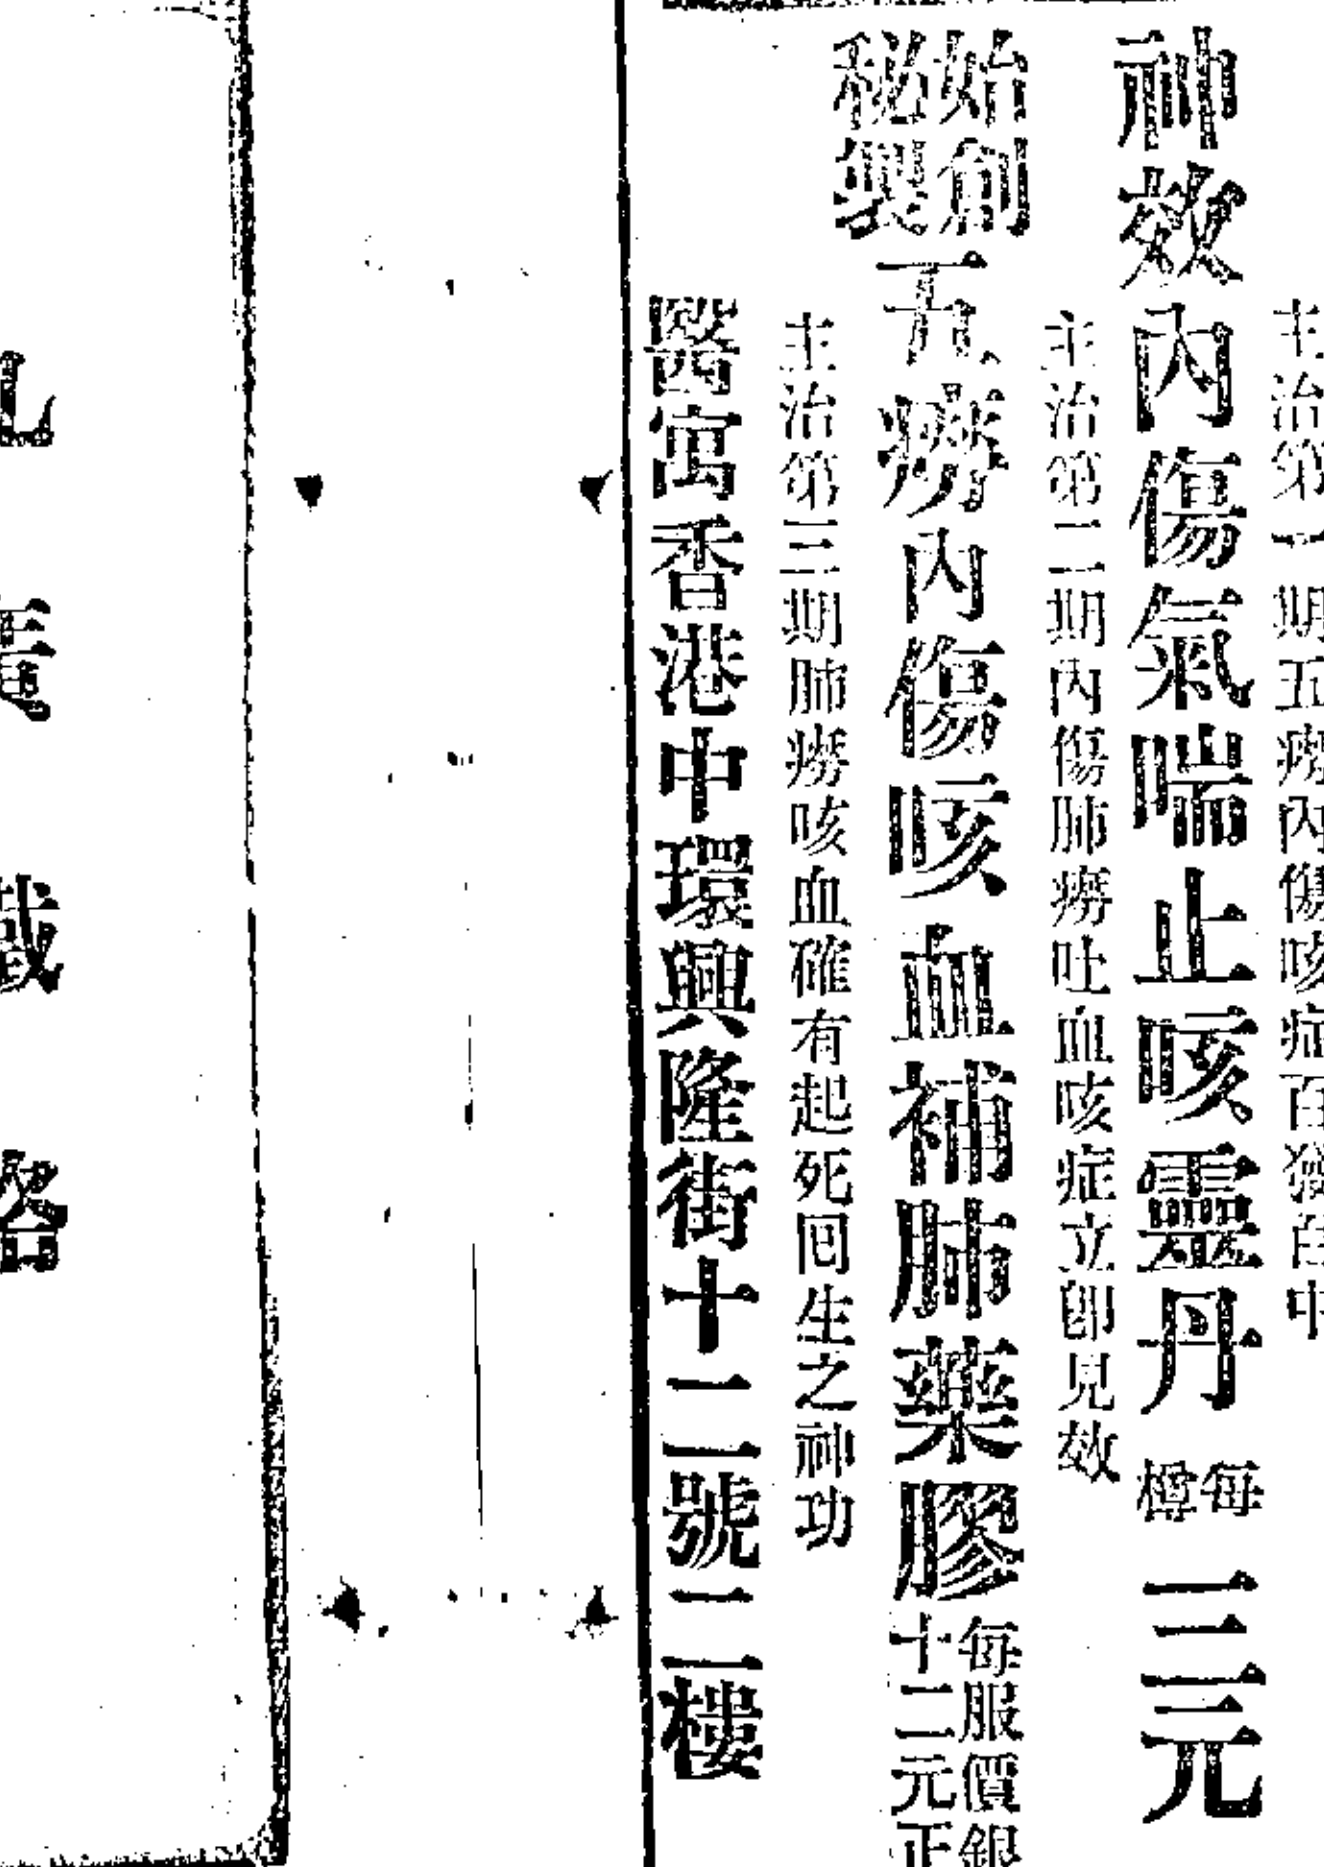 主治第一期五癆內傷咳症百發百中
神效內傷氣喘止咳靈丹 每樽 三元
主治第二期內傷肺癆吐血咳症立卽見效
始創秘製 五癆內傷咳血補肺藥膠 每服價銀十二元正
主治第三期肺癆咳血確有起死囘生之神功
醫寓香港中環興隆街十二號二樓